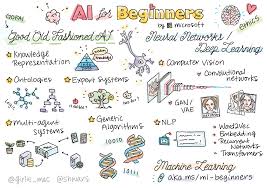 AI for Beginners
by Microsoft
ethics
Good Old Fashioned AI
Knowledge
Representation
Ontologies
Expert Systems
Multi-agent
Systems
Genetic
Algorithms
Neural Networks /
Deep Learning
Computer Vision
Convolutional
networks
GAN/
VAE
NLP
Word2Vec
Embedding
Recurrent
Networks
Transformers
Machine Learning
@ aka.ms/ml-beginners
@girlie_mac @shwars